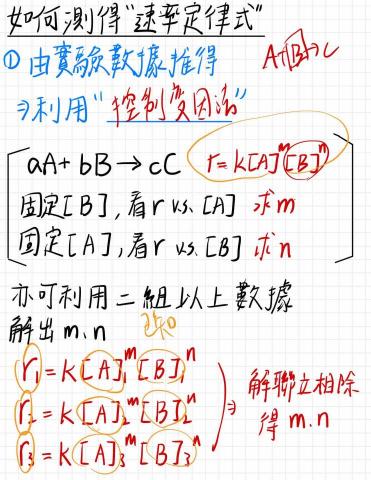 如何測得“速率定律式”
① 由實驗數據推得
A+B→C
⇒利用“控制變因法”
aA+bB→cC  r=k[A]^m[B]^n
固定[B],看r v.s.[A] 求m
固定[A],看r v.s.[B] 求n
亦可利用二組以上數據
解出m.n
已知
r₁=k[A]₁^m[B]₁^n
r₂=k[A]₂^m[B]₂^n
r₃=k[A]₃^m[B]₃^n
⇒ 解聯立相除
得m.n